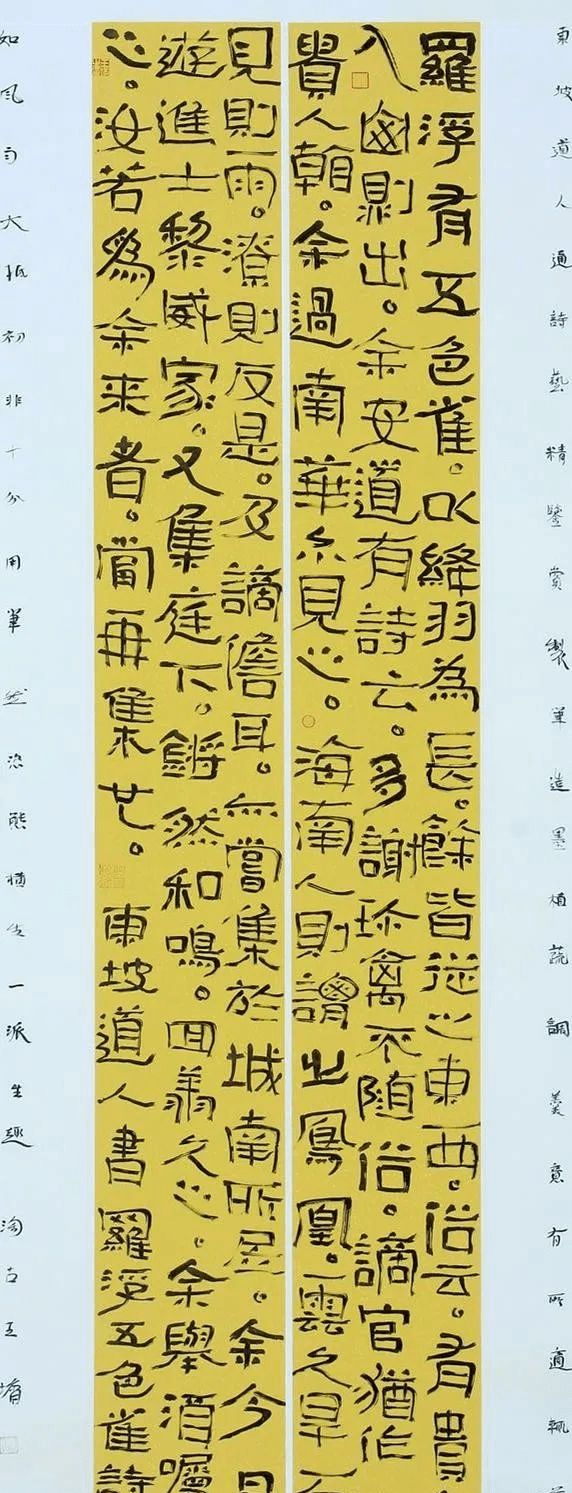 東坡道人通詩藝精鑒賞製筆造墨植蔬調羹意有所適輒
羅浮有五色雀。以絳羽為長。餘皆從之東西。俗云。有貴
入必則出。余安道有詩云。多謝珍禽不隨俗。謫官猶作
貴人朝。余過南華亦見之。海南人則謂之鳳凰。云久旱而
見則雨。潦則反是。及謫儋耳。亦嘗集於城南所居。余今日
遊進士黎威家。又集庭下。鏘然和鳴。回翔久之。余舉酒囑
之。汝若為余來者。當再集也。東坡道人書羅浮五色雀詩
如風 大抵初非十分用筆 然恣態橫生一派生趣